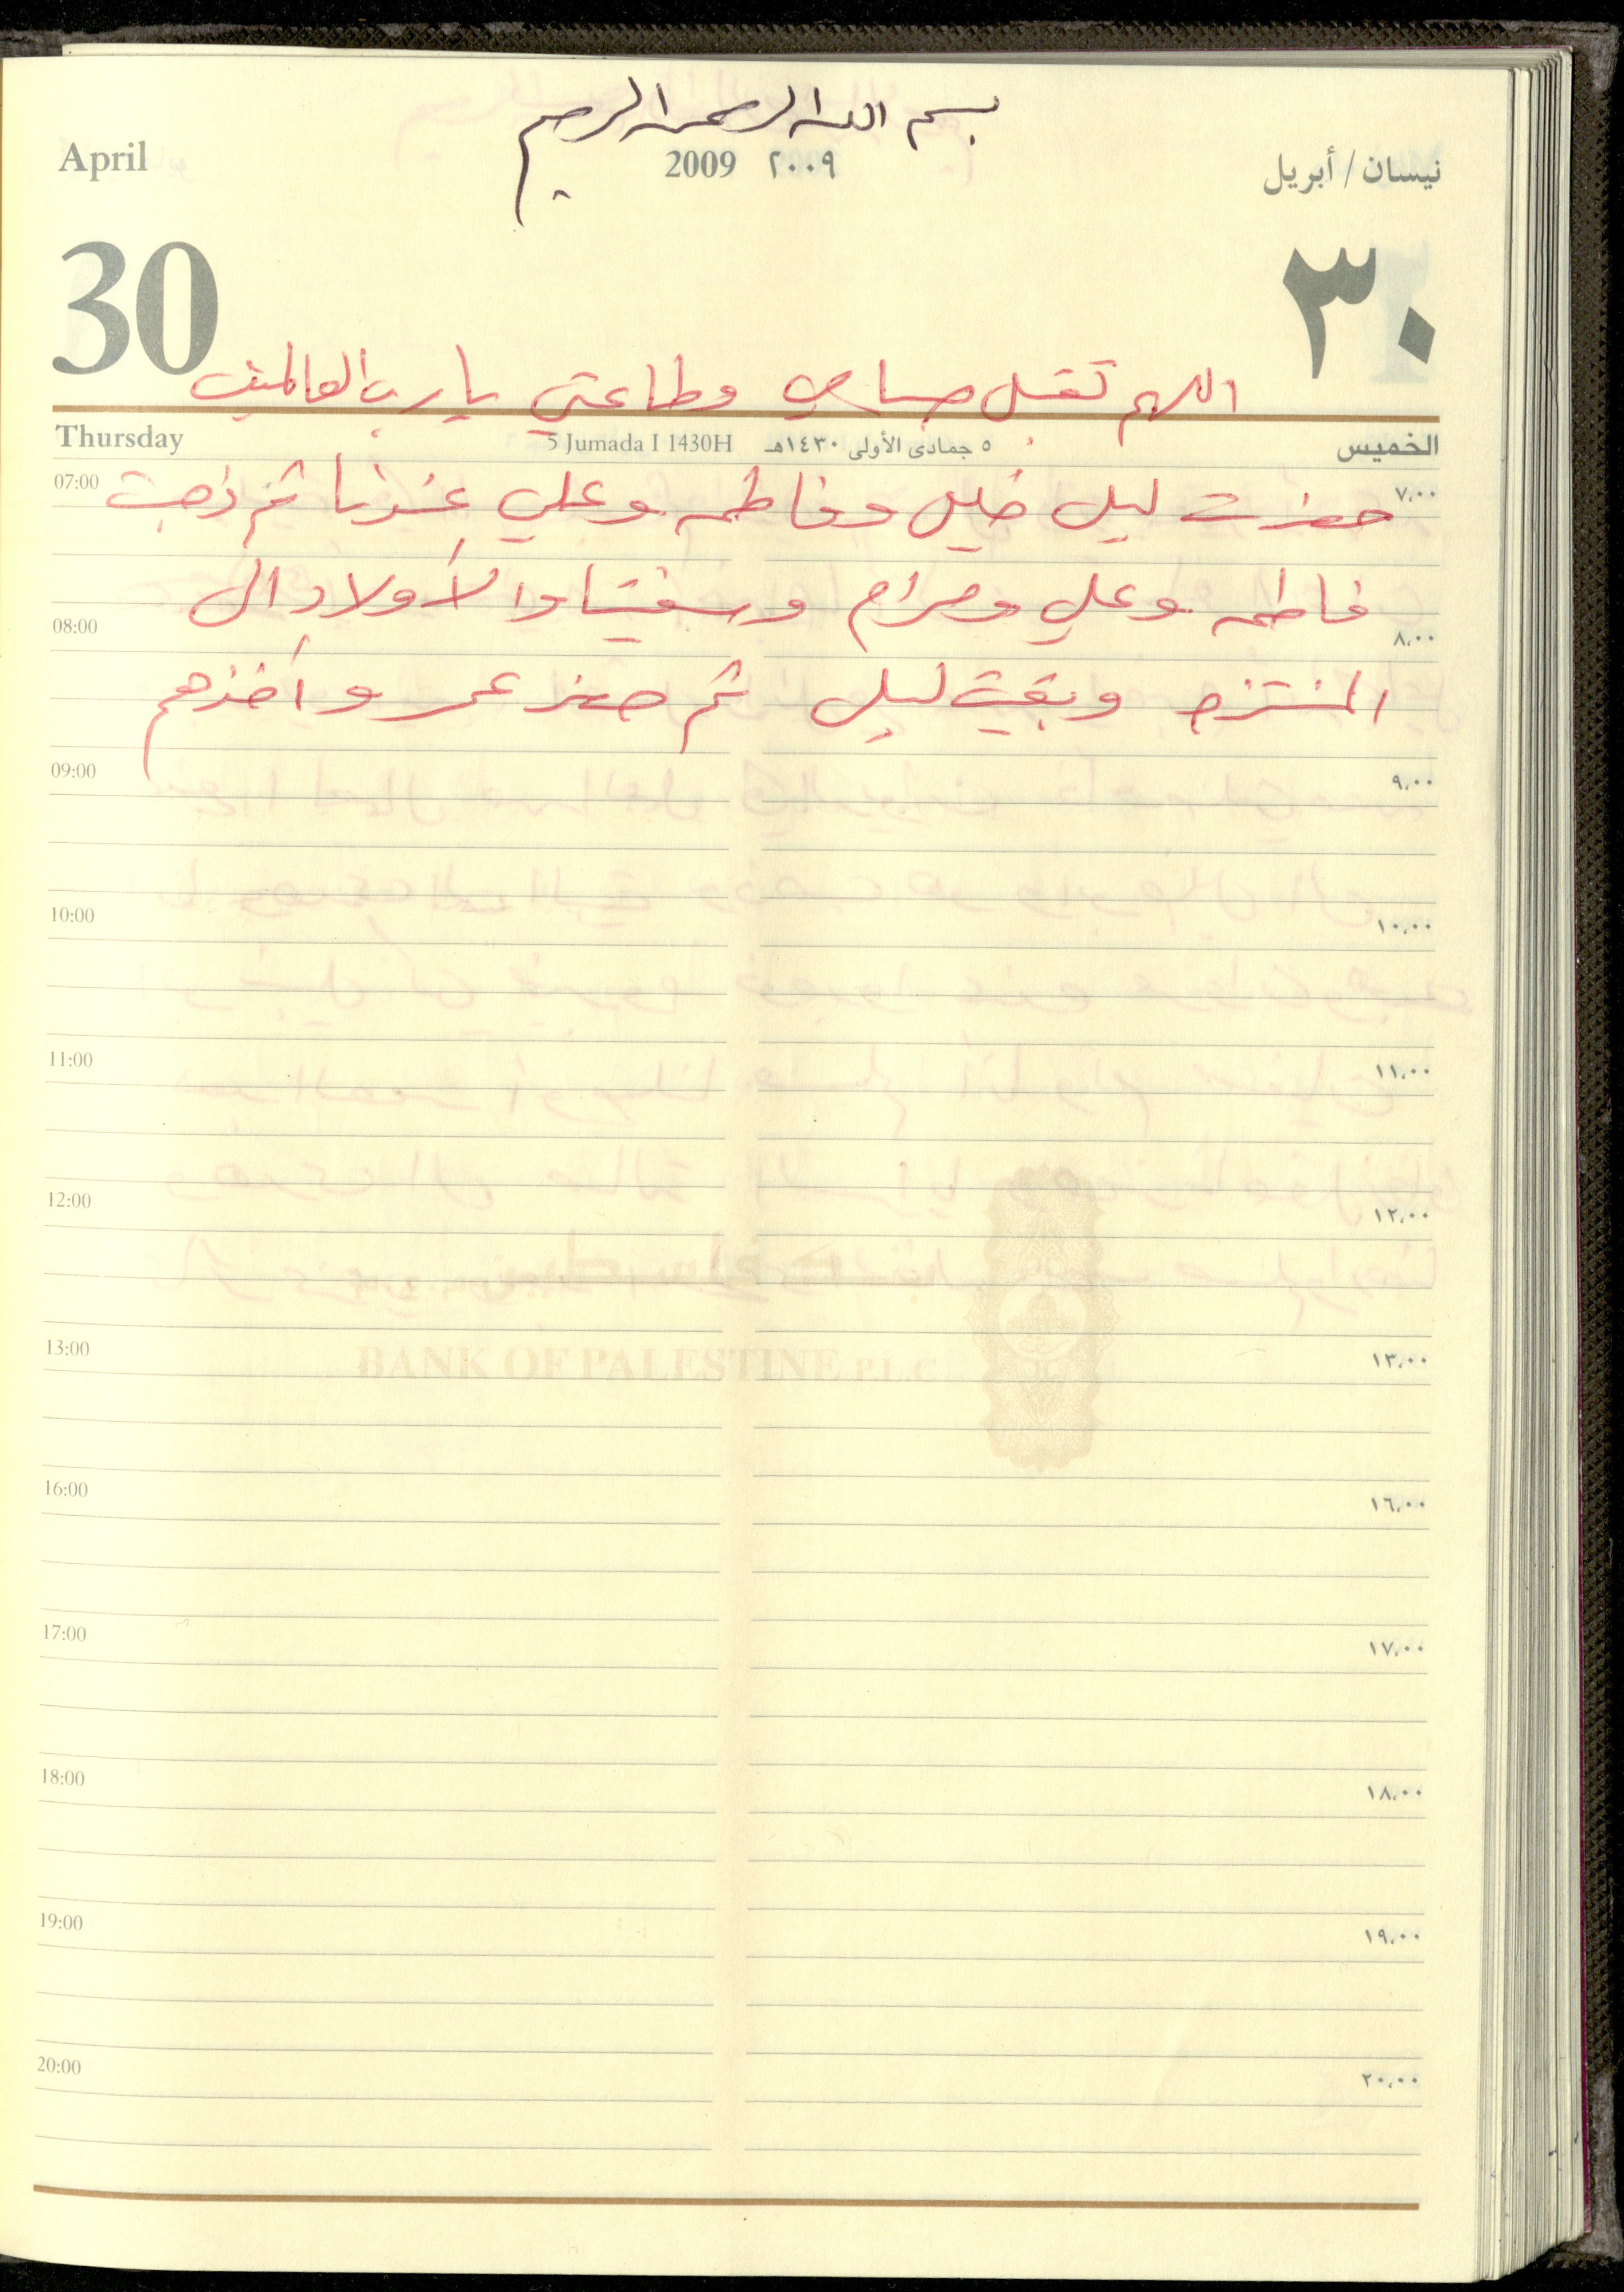 بسم الله الرحمن الرحيم
April 2009 ٢٠٠٩ نيسان / أبريل
30 ٣٠
اللهم تقبل صيامي وطاعتي يا رب العالمين
Thursday 5 Jumada I 1430H ٥ جمادى الأولى ١٤٣٠هـ الخميس
07:00 حضرت ليل خليل وفاطمه وعلي عندنا ثم ذهبت ٧،٠٠
فاطمه وعلي ومرام والأولاد الى
08:00 ٨،٠٠
المنتزه وبقيت ليل ثم حضر عمر وأخذهم
09:00 ٩،٠٠
10:00 ١٠،٠٠
11:00 ١١،٠٠
12:00 ١٢،٠٠
13:00 ١٣،٠٠
BANK OF PALESTINE P.L.C
16:00 ١٦،٠٠
17:00 ١٧،٠٠
18:00 ١٨،٠٠
19:00 ١٩،٠٠
20:00 ٢٠،٠٠